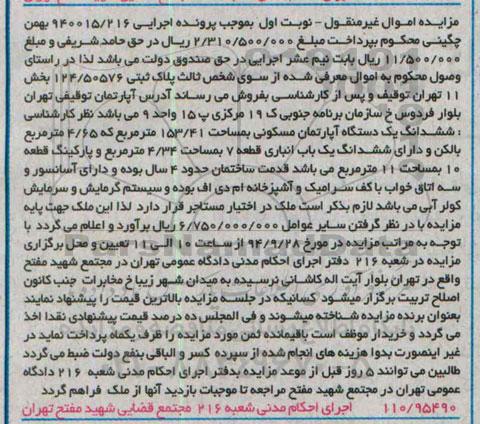 مزایده اموال غیرمنقول - نوبت اول بموجب پرونده اجرایی ۹۴۰۰۱۵/۲۱۶ بهمن
چگینی محکوم بپرداخت مبلغ ۲/۳۱۰/۵۰۰/۰۰۰ ریال در حق حامد شریفی و مبلغ
۱۱/۵۰۰/۰۰۰ ریال بابت نیم عشر اجرایی در حق صندوق دولت می باشد لذا در راستای
وصول محکوم به اموال معرفی شده از سوی شخص ثالث پلاک ثبتی ۱۲۴/۵۰۵۷۶ بخش
۱۱ تهران توقیف و پس از کارشناسی بفروش می رساند آدرس آپارتمان توقیفی تهران
بلوار فردوس خ سازمان برنامه جنوبی ک ۱۹ مرکزی پ ۱۵ واحد ۹ می باشد نظر کارشناسی
: ششدانگ یک دستگاه آپارتمان مسکونی بمساحت ۱۵۳/۴۱ مترمربع که ۴/۶۵ مترمربع
بالکن و دارای ششدانگ یک باب انباری قطعه ۷ بمساحت ۴/۳۴ مترمربع و پارکینگ قطعه
۱۰ بمساحت ۱۱ مترمربع می باشد قدمت ساختمان حدود ۴ سال بوده و دارای آسانسور و
سه اتاق خواب با کف سرامیک و آشپزخانه ام دی اف بوده و سیستم گرمایش و سرمایش
کولر آبی می باشد لازم بذکر است ملک در اختیار مستاجر قرار دارد لذا این ملک جهت پایه
مزایده با در نظر گرفتن سایر عوامل ۶/۷۵۰/۰۰۰/۰۰۰ ریال برآورد و اعلام می گردد با
توجه به مراتب مزایده در مورخ ۹۴/۹/۲۸ از ساعت ۱۰ الی ۱۱ تعیین و محل برگزاری
مزایده در شعبه ۲۱۶ دفتر اجرای احکام مدنی دادگاه عمومی تهران در مجتمع شهید مفتح
واقع در تهران بلوار آیت اله کاشانی نرسیده به میدان شهر زیبا خ مخابرات جنب کانون
اصلاح تربیت برگزار میشود کسانیکه در جلسه مزایده بالاترین قیمت را پیشنهاد نمایند
بعنوان برنده مزایده شناخته میشوند و فی المجلس ده درصد قیمت پیشنهادی نقدا اخذ
می گردد و خریدار موظف است باقیمانده ثمن مورد مزایده را ظرف یکماه پرداخت نماید در
غیر اینصورت بدوا هزینه های انجام شده از سپرده کسر و الباقی بنفع دولت ضبط می گردد
طالبین می توانند ۵ روز قبل از موعد مزایده بدفتر اجرای احکام مدنی شعبه ۲۱۶ دادگاه
عمومی تهران در مجتمع شهید مفتح مراجعه تا موجبات بازدید آنها از ملک فراهم گردد
۱۱۰/۹۵۴۹۰ اجرای احکام مدنی شعبه ۲۱۶ مجتمع قضایی شهید مفتح تهران